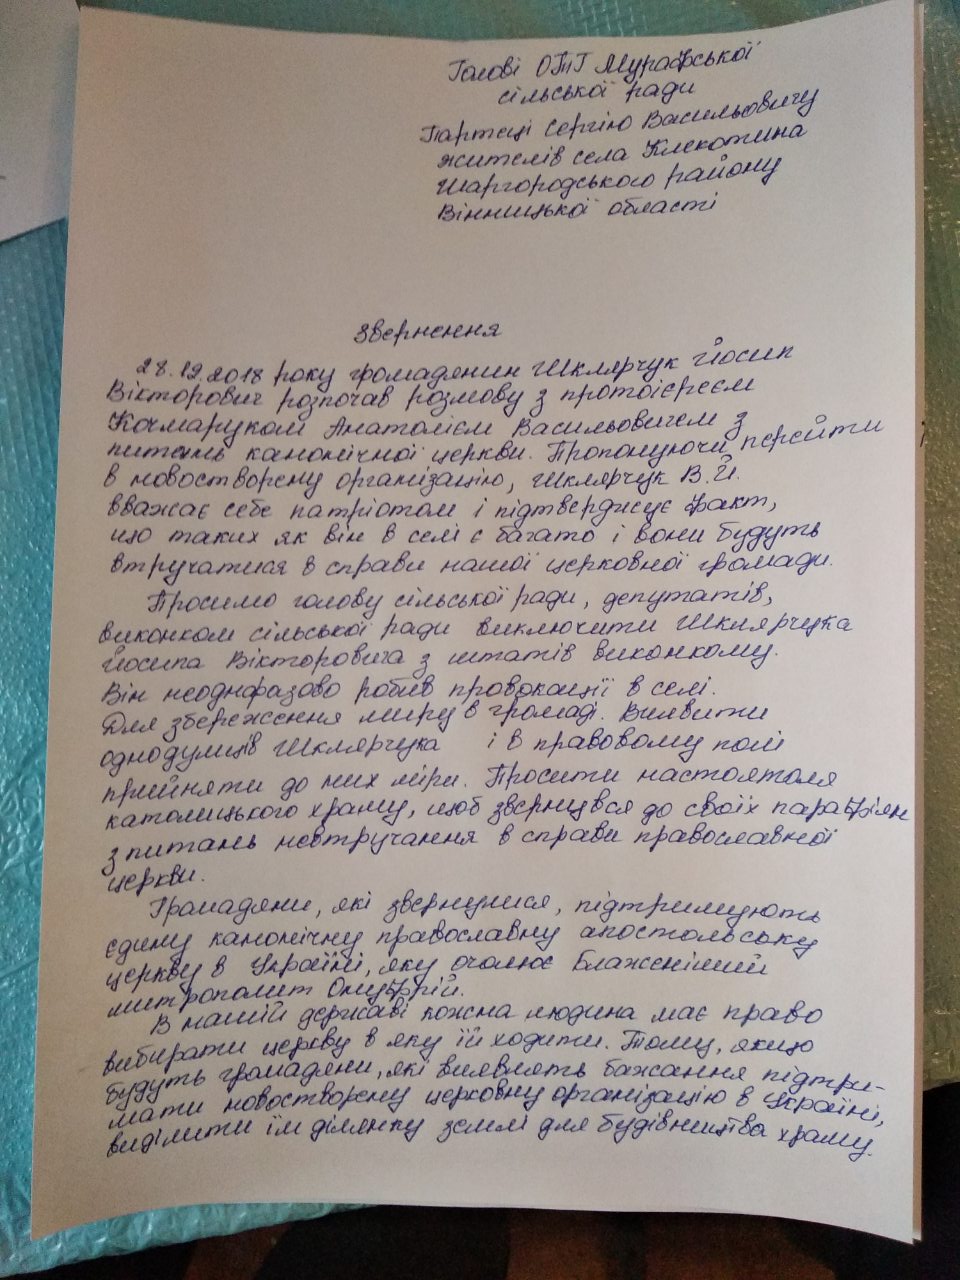 Голові ОТГ Мурафської
сільської ради
Партеці Сергію Васильовичу
жителів села Клекотина
Шаргородського району
Вінницької області
Звернення
28.12.2018 року громадянин Шклярчук Йосип
Вікторович розпочав розмову з протоієреєм
Кочмаруком Анатолієм Васильовичем з
питань канонічної церкви. Пропонуючи перейти
в новостворену організацію, Шклярчук В.Й.
вважає себе патріотом і підтверджує факт,
що таких як він в селі є багато і вони будуть
втручатися в справи нашої церковної громади.
Просимо голову сільської ради, депутатів,
виконком сільської ради виключити Шклярчука
Йосипа Вікторовича з штатів виконкому.
Він неоднфазово робив провокації в селі.
Для збереження миру в громаді. Виявити
однодумців Шклярчука і в правовому полі
прийняти до них міри. Просити настоятеля
католицького храму, щоб звернувся до своїх парафіян
з питань невтручання в справи православної
церкви.
Громадяни, які звернулися, підтримують
єдину канонічну православну апостольську
церкву в Україні, яку очолює Блаженіший
митрополит Онуфрій.
В нашій державі кожна людина має право
вибирати церкву в яку їй ходити. Тому, якщо
будуть громадяни, які виявлять бажання підтри-
мати новостворену церковну організацію в Україні,
виділити їм ділянку землі для будівництва храму.